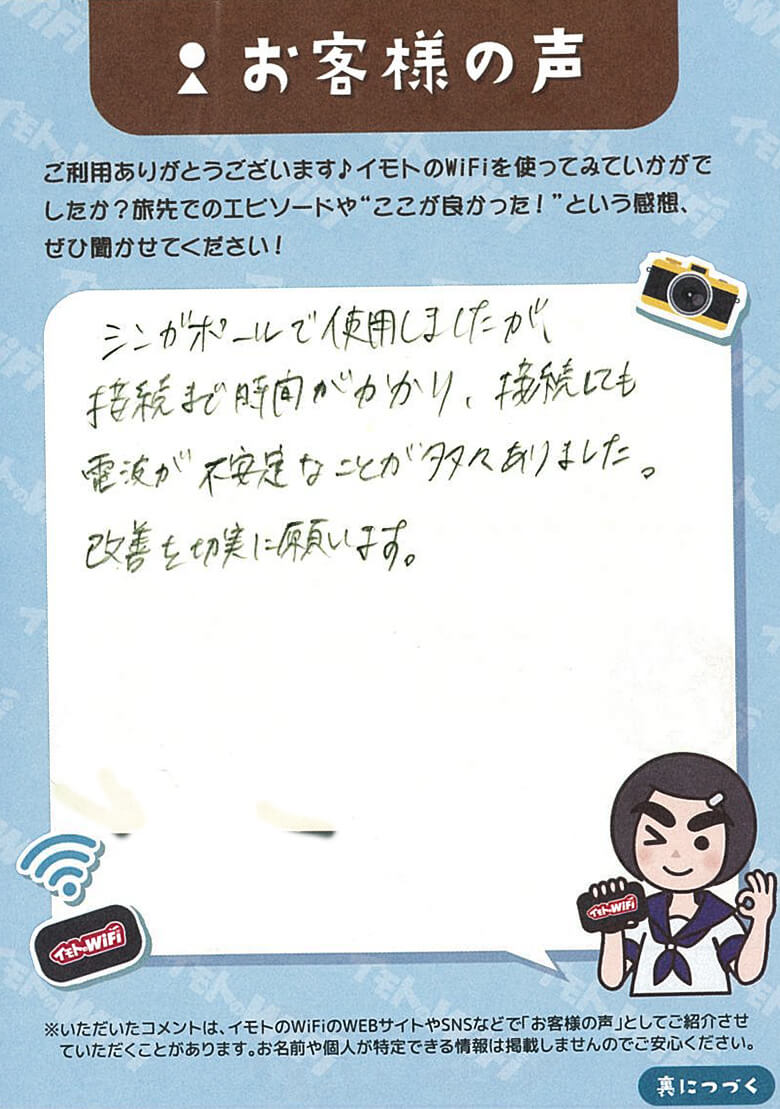 お客様の声
ご利用ありがとうございます♪イモトのWiFiを使ってみていかがで
したか?旅先でのエピソードや“ここが良かった!”という感想、
ぜひ聞かせてください!
シンガポールで使用しましたが、
接続まで時間がかかり、接続しても
電波が不安定なことが多々ありました。
改善を切実に願います。
イモトのWiFi
イモトのWiFi
※いただいたコメントは、イモトのWiFiのWEBサイトやSNSなどで「お客様の声」としてご紹介させ
ていただくことがあります。お名前や個人が特定できる情報は掲載しませんのでご安心ください。
裏につづく